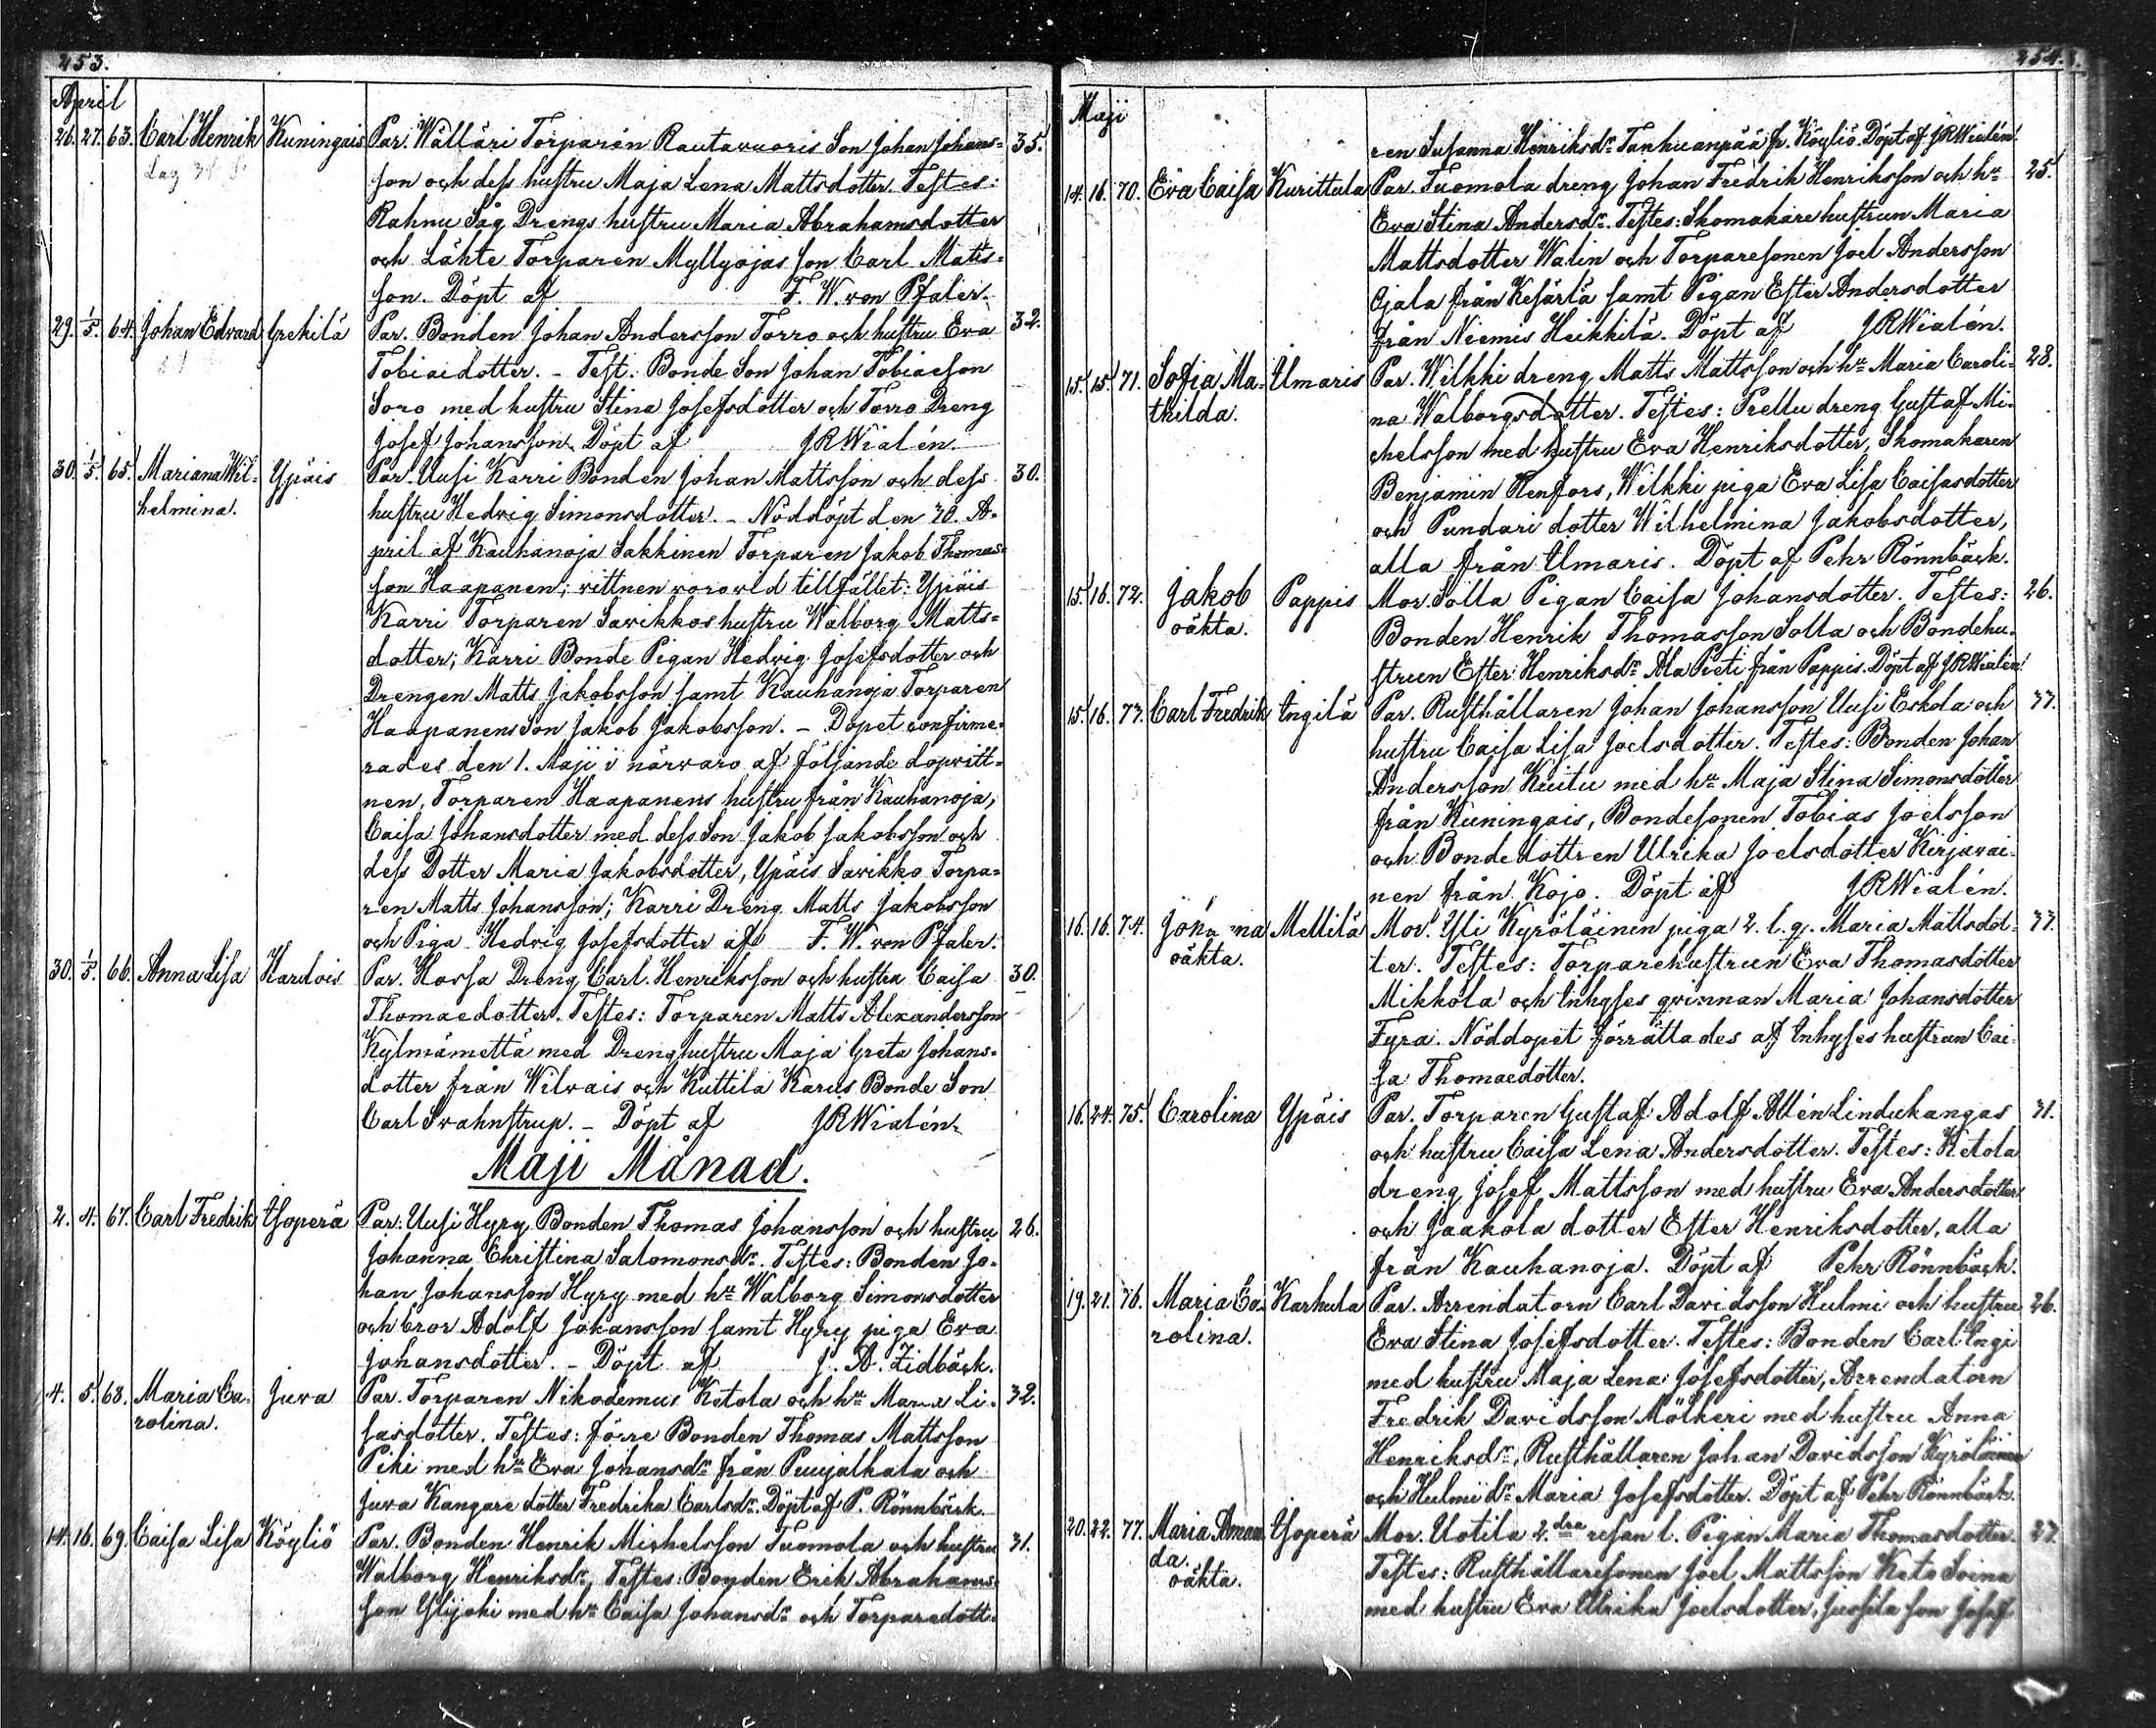 253.
April
26. 27. 63. Carl Henrik Kuningais Par. Wälläri Torparen Rautavuoris Son Johan Johans= 35.
son och dess hustru Maja Lena Mattsdotter. Testes:
Rahnu Såg Drengs hustru Maria Abrahamsdotter
och Lähte Torparen Myllyojas son Carl Matts=
son. Döpt af F. W. von Pfaler.
29. 1/5. 64. Johan Edvard Grekilä Par. Bonden Johan Andersson Torro och hustru Eva 32.
Tobiaedotter. – Test. Bonde Son Johan Tobiaeson
Soro med hustru Stina Josefsdotter och Torro Dreng
Josef Johansson. Döpt af JRWialén.
30. 1/5. 65. Mariana Wil= Ypäis Par. Uusi Karri Bonden Johan Mattsson och dess 30.
helmina. hustru Hedvig Simonsdotter. – Nöddöpt den 30. A=
pril af Kauhanoja Sakkinen Torparen Jakob Thomas=
son Haapanen; vittnen voro vid tillfället: Ypäis
Karri Torparen Savikkos hustru Walborg Matts=
dotter; Karri Bonde Pigan Hedvig Josefsdotter och
Drengen Matts Jakobsson samt Kauhanoja Torparen
Haapanens Son Jakob Jakobsson. – Dopet confirme=
rades den 1. Maji i närvaro af följande dopvitt=
nen, Torparen Haapanens hustru från Kauhanoja,
Caisa Johansdotter med dess Son Jakob Jakobsson och
dess Dotter Maria Jakobsdotter, Ypäis Savikko Torpa=
ren Matts Johansson; Karri Dreng Matts Jakobsson
och Piga Hedvig Josefsdotter af F. W. von Pfaler.
30. 1/5. 66. Anna Lisa Kardois Par. Hossa Dreng Carl Henriksson och hustru Caisa 30.
Thomaedotter. Testes: Torparen Matts Alexandersson
Kylmämettä med Drenghustru Maja Greta Johans=
dotter från Wilvais och Kuttila Karus Bonde Son
Carl Svahnstrup. – Döpt af JRWialén.
Maji Månad.
2. 4. 67. Carl Fredrik Ysoperä Par. Uusi Hyry Bonden Thomas Johansson och hustru 26.
Johanna Christina Salomonsdr. Testes: Bonden Jo=
han Johansson Hyry med hu Walborg Simonsdotter
och bror Adolf Johansson samt Hyry piga Eva
Johansdotter. – Döpt af J. A. Lidbäck.
4. 5. 68. Maria Ca= Juva Par. Torparen Nikodemus Ketola och hu Maria Li= 32.
rolina. sasdotter. Testes: förre Bonden Thomas Mattsson
Piki med hu Eva Johansdr från Puujalkala och
Juva Kangare dotter Fredrika Carlsdr. Döpt af P. Rönnbäck.
14. 16. 69. Caisa Lisa Köyliö Par. Bonden Henrik Michelsson Tuomola och hustru 31.
Walborg Henriksdr. Testes: Bonden Erik Abrahams=
son Ylijoki med hu Caisa Johansdr och Torparedott=
254.
Maji
ren Susanna Henriksdr Tanhuanpää fr. Köyliö. Döpt af JRWialén.
14. 16. 70. Eva Caisa Kurittula Par. Tuomola dreng Johan Fredrik Henriksson och hu 25.
Eva Stina Andersdr. Testes: Skomakarehustrun Maria
Mattsdotter Walin och Torparesonen Joel Andersson
Ojala från Kesärlä samt Pigan Ester Andersdotter
från Niemis Heikkilä. Döpt af JRWialén.
15. 15. 71. Sofia Ma= Ilmaris Par. Wilkki dreng Matts Mattsson och hu Maria Caroli= 28.
thilda. na Walborgsdotter. Testes: Prellu dreng Gustaf Mi=
chelsson med hustru Eva Henriksdotter, Skomakaren
Benjamin Renfors, Wilkki piga Eva Lisa Caisasdotter
och Pundari dotter Wilhelmina Jakobsdotter,
alla från Ilmaris. Döpt af Pehr Rönnbäck.
15. 16. 72. Jakob Pappis Mor. Solla Pigan Caisa Johansdotter. Testes: 26.
oäkta. Bonden Henrik Thomasson Solla och Bondehu=
strun Ester Henriksdr Ala Pieti från Pappis. Döpt af JRWialén.
15. 16. 73. Carl Fredrik Yngilä Par. Rusthållaren Johan Johansson Uusi Eskola och 37.
hustru Caisa Lisa Joelsdotter. Testes: Bonden Johan
Andersson Kuitu med hu Maja Stina Simonsdotter
från Kuningais, Bondesonen Tobias Joelsson
och Bondedottren Ulrika Joelsdotter Kirjavai=
nen från Kojo. Döpt af JRWialén.
16. 16. 74. Mellilä Mor. Yli Kyröläinen piga 2. l. g. Maria Mattsdot= 37.
oäkta. ter. Testes: Torparehustrun Eva Thomasdotter
Mikkola och Inhyses qvinnan Maria Johansdotter
Fyra. Nöddopet förrättades af Inhyses hustrun Cai=
sa Thomaedotter.
16. 24. 75. Carolina Ypäis Par. Torparen Gustaf Adolf Allén Lindukangas 31.
och hustru Caisa Lena Andersdotter. Testes: Ketola
dreng Josef Mattsson med hustru Eva Andersdotter
och Jaakola dotter Ester Henriksdotter, alla
från Kauhanoja. Döpt af Pehr Rönnbäck.
19. 21. 76. Maria Ca= Karhula Par. Arrendatorn Carl Davidsson Hulmi och hustru 26.
rolina. Eva Stina Josefsdotter. Testes: Bonden Carl Yngi
med hustru Maja Lena Josefsdotter, Arrendatorn
Fredrik Davidsson Mölkeri med hustru Anna
Henriksdr, Rusthållaren Johan Davidsson Kyröläinen
och Hulmi dr Maria Josefsdotter. Döpt af Pehr Rönnbäck.
20. 22. 77. Maria Aman= Ysoperä Mor. Uotila 2.dra resan l. Pigan Maria Thomasdotter. 27.
da. Testes: Rusthållaresonen Joel Mattsson Keto Soina
oäkta. med hustru Eva Ulrika Joelsdotter, Jussila son Josef